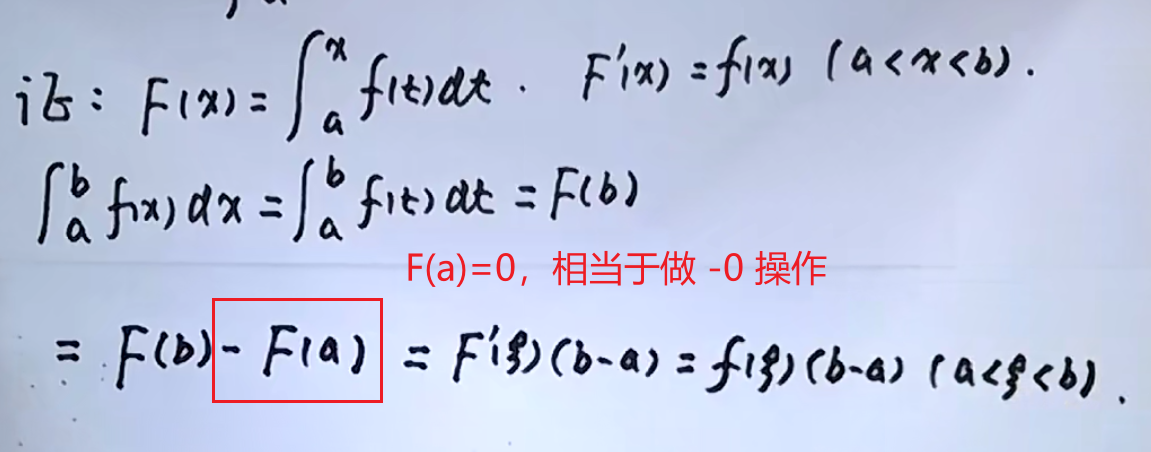 证: F(x) = ∫_a^x f(t)dt. F'(x) = f(x) (a<x<b).
∫_a^b f(x)dx = ∫_a^b f(t)dt = F(b)
F(a)=0，相当于做 -0 操作
= F(b) - F(a) = F'(ξ)(b-a) = f(ξ)(b-a) (a<ξ<b).